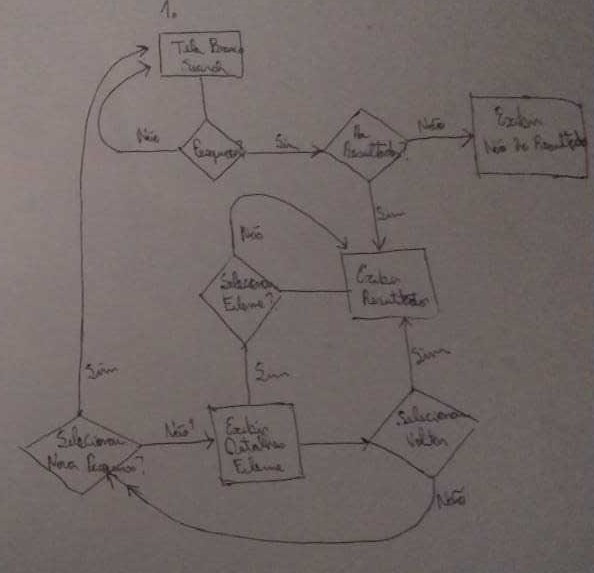 1.
Tela Branca
Search
Não
Pesquisou?
Sim
Há
Resultados?
Não
Exibir
Não há Resultados
Sim
Não
Selecionou
Filme?
Exibir
Resultados
Sim
Sim
Sim
Selecionou
Nova Pesquisa?
Não?
Exibir
Detalhes
Filme
Selecionou
Voltar
Não